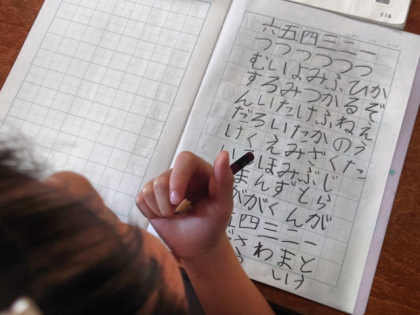 かぞえうた
一つひるねのくじらが一とう
二つふかぶかざぶとん二まい
三つみつけたみみずく三わ
四つよみたいえほんが四さつ
五ついろいろくるまが五
六つむすんだけい